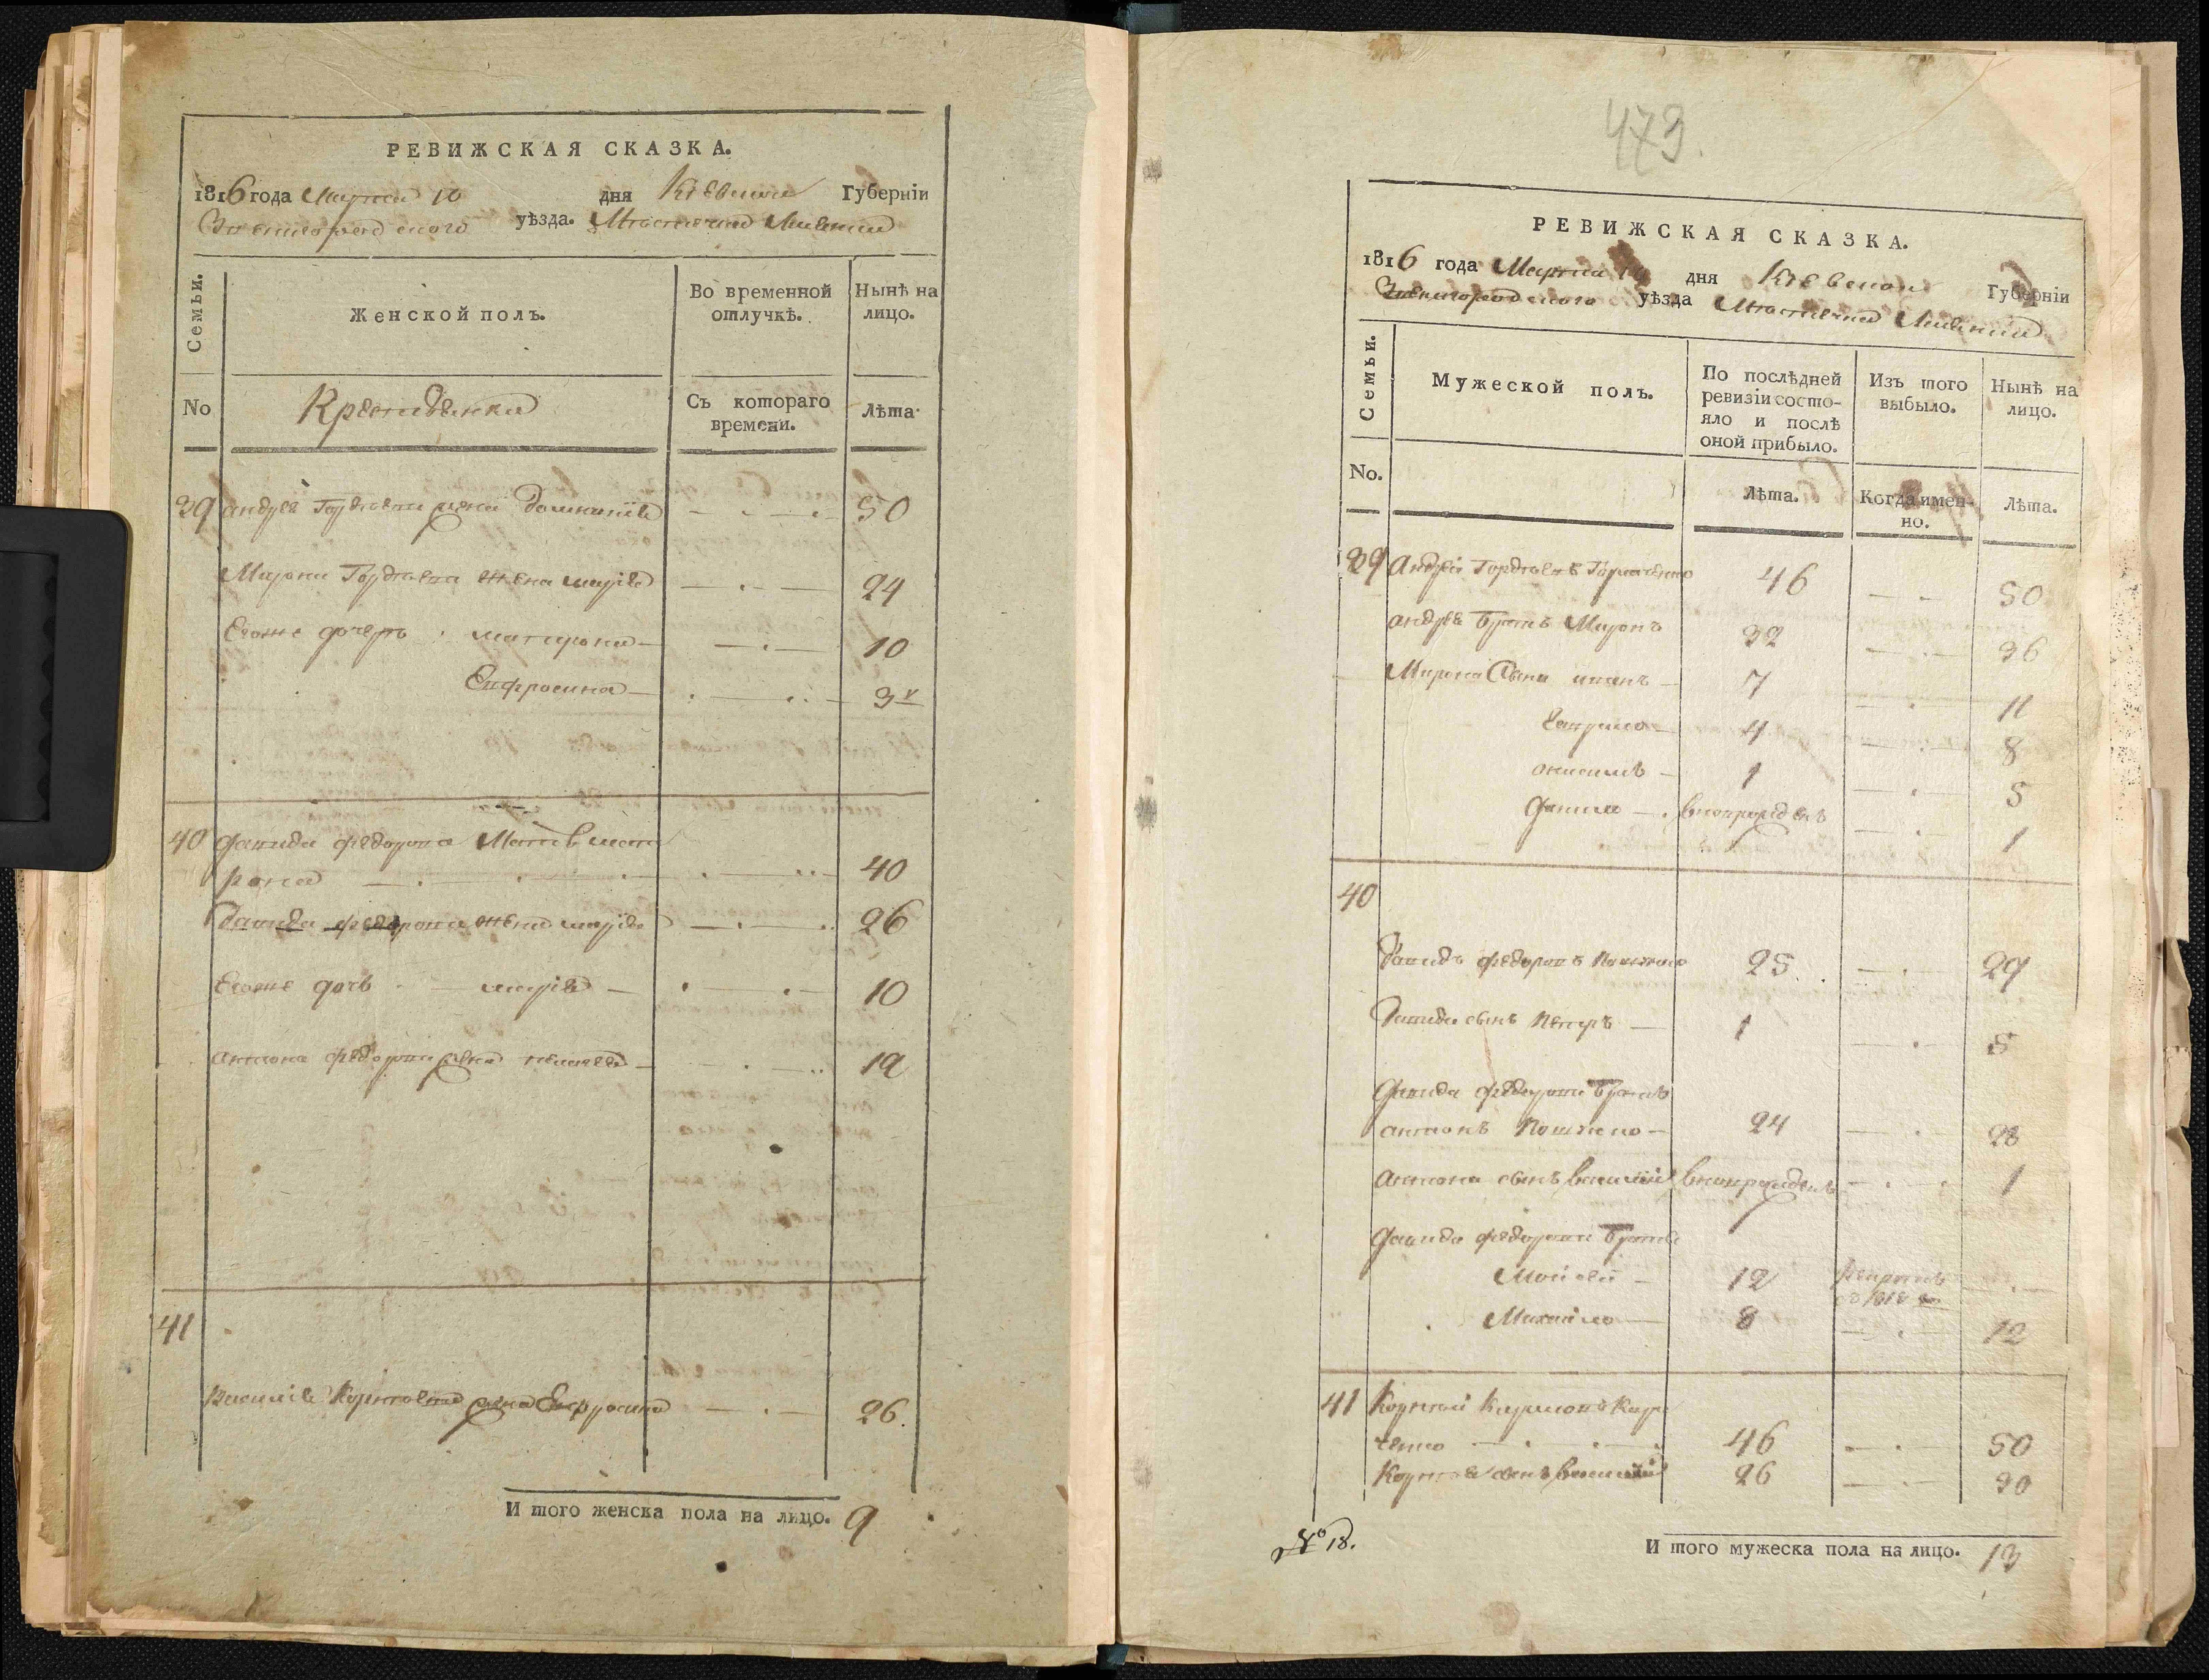 РЕВИЖСКАЯ СКАЗКА.
1816 года Марта 10 дня Кіевской Губерніи
Звенигородского уѣзда. Мѣстечка
Семьи.
Женской полъ.
Во временной отлучкѣ.
Нынѣ на лицо.
No
Крестьянки
Съ котораго времени.
Лѣта
39 андрея Гордѣева жена Домникія 50
Мирона Гордѣева жена марія 24
Егоже дочерь матрона 10
Евфросина 3
40 Давида федорова Мать
40
Давида федорова жена марія 26
Егоже дочь марія 10
антона федорова жена 19
41
Василія Корнѣева жена Ефросина 26.
И того женска пола на лицо. 9
479.
РЕВИЖСКАЯ СКАЗКА.
1816 года Марта 10 дня Кіевской Губерніи
Звенигородского уѣзда Мѣстечка
Семьи.
Мужеской полъ.
По послѣдней ревизіи состояло и послѣ оной прибыло.
Изъ того выбыло.
Нынѣ на лицо.
No.
Лѣта.
Когда именно.
Лѣта.
39 Андрей Гордѣевъ 46 50
андрея Братъ Миронъ 32 36
Мирона Сыны иванъ 7 11
Гаврило 4 8
онисимъ 1 5
Данило вноврожденъ 1
40
Давидъ федоровъ 25 29
Давида сынъ Петръ 1 5
Давида федорова Братъ
антонъ 24 28
антона сынъ василій вноврожденъ 1
Давида федорова Братья
Мойсей 12
Михайло 8 12
41 Корнѣй
46 50
Корнѣя сынъ василій 26 30
№ 18.
И того мужеска пола на лицо. 13